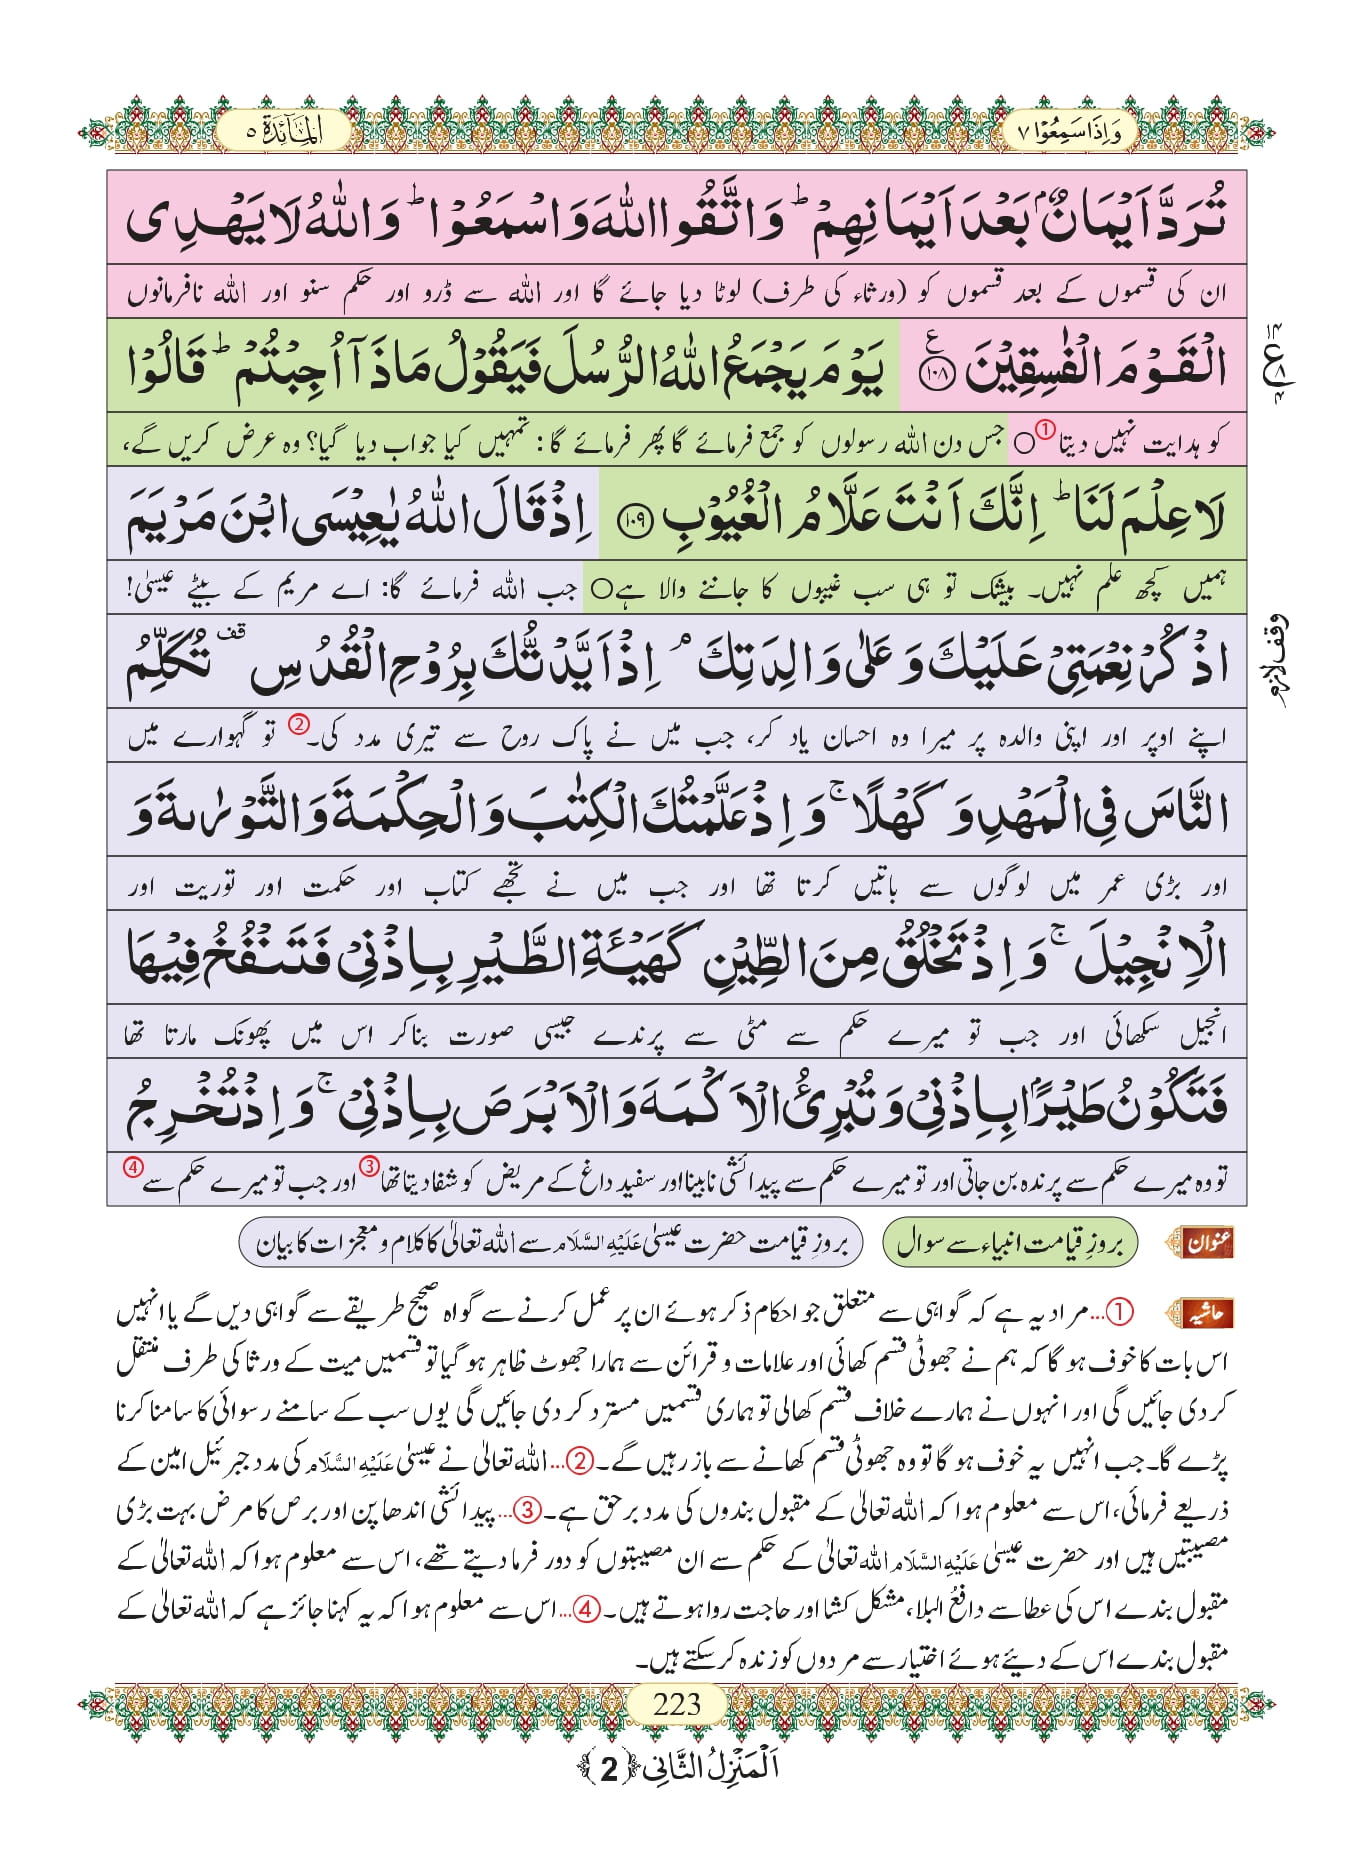 وَاِذَاسَمِعُوْا ٧
اَلْمَآئِدَة ٥
تُرَدَّ اَیْمَانٌۢ بَعْدَ اَیْمَانِهِمْ ؕ وَ اتَّقُوا اللّٰهَ وَ اسْمَعُوْا ؕ وَ اللّٰهُ لَا یَهْدِی
ان کی قسموں کے بعد قسموں کو (ورثاء کی طرف) لوٹا دیا جائے گا اور اللہ سے ڈرو اور حکم سنو اور اللہ نافرمانوں
الْقَوْمَ الْفٰسِقِیْنَ ۧ﴿۱۰۸﴾ یَوْمَ یَجْمَعُ اللّٰهُ الرُّسُلَ فَیَقُوْلُ مَاذَاۤ اُجِبْتُمْ ؕ قَالُوْا
۱۴ ع ۸ ۴
کو ہدایت نہیں دیتا① ○ جس دن اللہ رسولوں کو جمع فرمائے گا پھر فرمائے گا: تمہیں کیا جواب دیا گیا؟ وہ عرض کریں گے،
لَا عِلْمَ لَنَا ؕ اِنَّكَ اَنْتَ عَلَّامُ الْغُیُوْبِ ﴿۱۰۹﴾ اِذْ قَالَ اللّٰهُ یٰعِیْسَی ابْنَ مَرْیَمَ
ہمیں کچھ علم نہیں۔ بیشک تو ہی سب غیبوں کا جاننے والا ہے○ جب اللہ فرمائے گا: اے مریم کے بیٹے عیسیٰ!
اذْكُرْ نِعْمَتِیْ عَلَیْكَ وَ عَلٰى وَالِدَتِكَ ۘ اِذْ اَیَّدْتُّكَ بِرُوْحِ الْقُدُسِ ۫ تُكَلِّمُ
وقف لازم
اپنے اوپر اور اپنی والدہ پر میرا وہ احسان یاد کر، جب میں نے پاک روح سے تیری مدد کی۔② تو گہوارے میں
النَّاسَ فِی الْمَهْدِ وَ كَهْلًا ۚ وَ اِذْ عَلَّمْتُكَ الْكِتٰبَ وَ الْحِكْمَةَ وَ التَّوْرٰىةَ وَ
اور بڑی عمر میں لوگوں سے باتیں کرتا تھا اور جب میں نے تجھے کتاب اور حکمت اور توریت اور
الْاِنْجِیْلَ ۚ وَ اِذْ تَخْلُقُ مِنَ الطِّیْنِ كَهَیْــٴَـةِ الطَّیْرِ بِاِذْنِیْ فَتَنْفُخُ فِیْهَا
انجیل سکھائی اور جب تو میرے حکم سے مٹی سے پرندے جیسی صورت بناکر اس میں پھونک مارتا تھا
فَتَكُوْنُ طَیْرًۢا بِاِذْنِیْ وَ تُبْرِئُ الْاَكْمَهَ وَ الْاَبْرَصَ بِاِذْنِیْ ۚ وَ اِذْ تُخْرِجُ
تو وہ میرے حکم سے پرندہ بن جاتی اور تو میرے حکم سے پیدائشی نابینا اور سفید داغ کے مریض کو شفا دیتا تھا③ اور جب تو میرے حکم سے④
عنوان بروزِ قیامت انبیاء سے سوال بروزِ قیامت حضرت عیسیٰ عَلَیْهِ السَّلَام سے اللہ تعالیٰ کا کلام و معجزات کا بیان
حاشیہ ①...مراد یہ ہے کہ گواہی سے متعلق جو احکام ذکر ہوئے ان پر عمل کرنے سے گواہ صحیح طریقے سے گواہی دیں گے یا انہیں
اس بات کا خوف ہو گا کہ ہم نے جھوٹی قسم کھائی اور علامات و قرائن سے ہمارا جھوٹ ظاہر ہو گیا تو قسمیں میت کے ورثا کی طرف منتقل
کر دی جائیں گی اور انہوں نے ہمارے خلاف قسم کھالی تو ہماری قسمیں مسترد کر دی جائیں گی یوں سب کے سامنے رسوائی کا سامنا کرنا
پڑے گا۔ جب انہیں یہ خوف ہو گا تو وہ جھوٹی قسم کھانے سے باز رہیں گے۔ ②...اللہ تعالیٰ نے عیسیٰ عَلَیْهِ السَّلَام کی مدد جبرئیل امین کے
ذریعے فرمائی، اس سے معلوم ہوا کہ اللہ تعالیٰ کے مقبول بندوں کی مدد برحق ہے۔ ③...پیدائشی اندھا پن اور برص کا مرض بہت بڑی
مصیبتیں ہیں اور حضرت عیسیٰ عَلَیْهِ السَّلَام اللہ تعالیٰ کے حکم سے ان مصیبتوں کو دور فرما دیتے تھے، اس سے معلوم ہوا کہ اللہ تعالیٰ کے
مقبول بندے اس کی عطا سے دافعُ البلا، مشکل کشا اور حاجت روا ہوتے ہیں۔ ④...اس سے معلوم ہوا کہ یہ کہنا جائز ہے کہ اللہ تعالیٰ کے
مقبول بندے اس کے دیئے ہوئے اختیار سے مردوں کو زندہ کر سکتے ہیں۔
223
اَلْمَنْزِلُ الثَّانِی ﴿2﴾